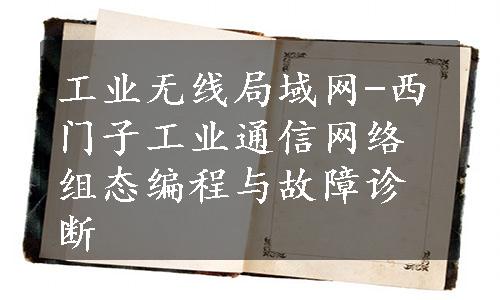 工业无线局域网-西
门子工业通信网络
组态编程与故障诊
断